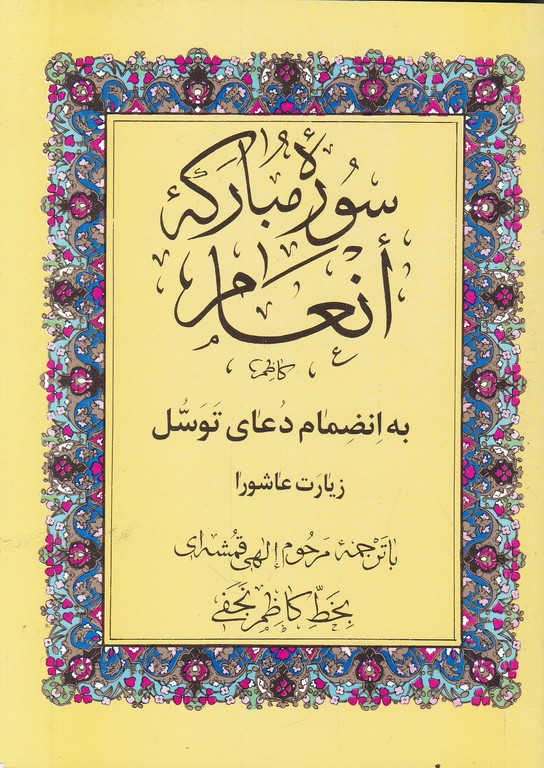 سورهٔ مبارکهٔ
أنعام
کاظم
به اِنضِمام دُعای تَوَسُّل
زیارت عاشورا
با تَرجمهٔ مرحوم إلهی قمشه‌ای
بِخَطِّ کاظِم نَجَفی